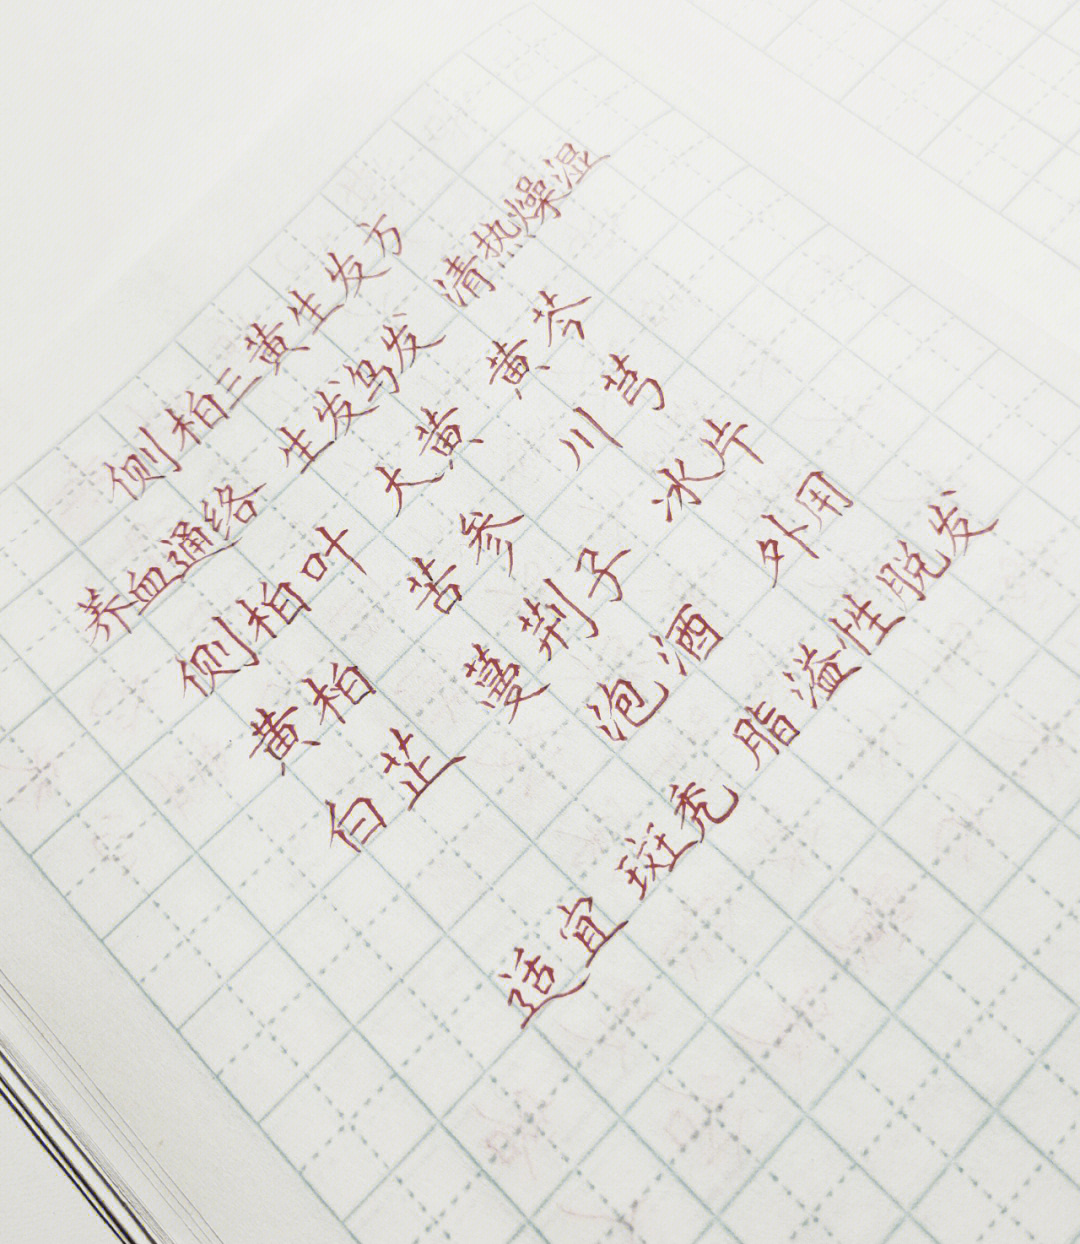 侧柏三黄生发方
养血通络 生发乌发 清热燥湿
侧柏叶 大黄 黄芩
黄柏 苦参 川芎
白芷 蔓荆子 冰片
泡酒 外用
适宜 斑秃 脂溢性脱发